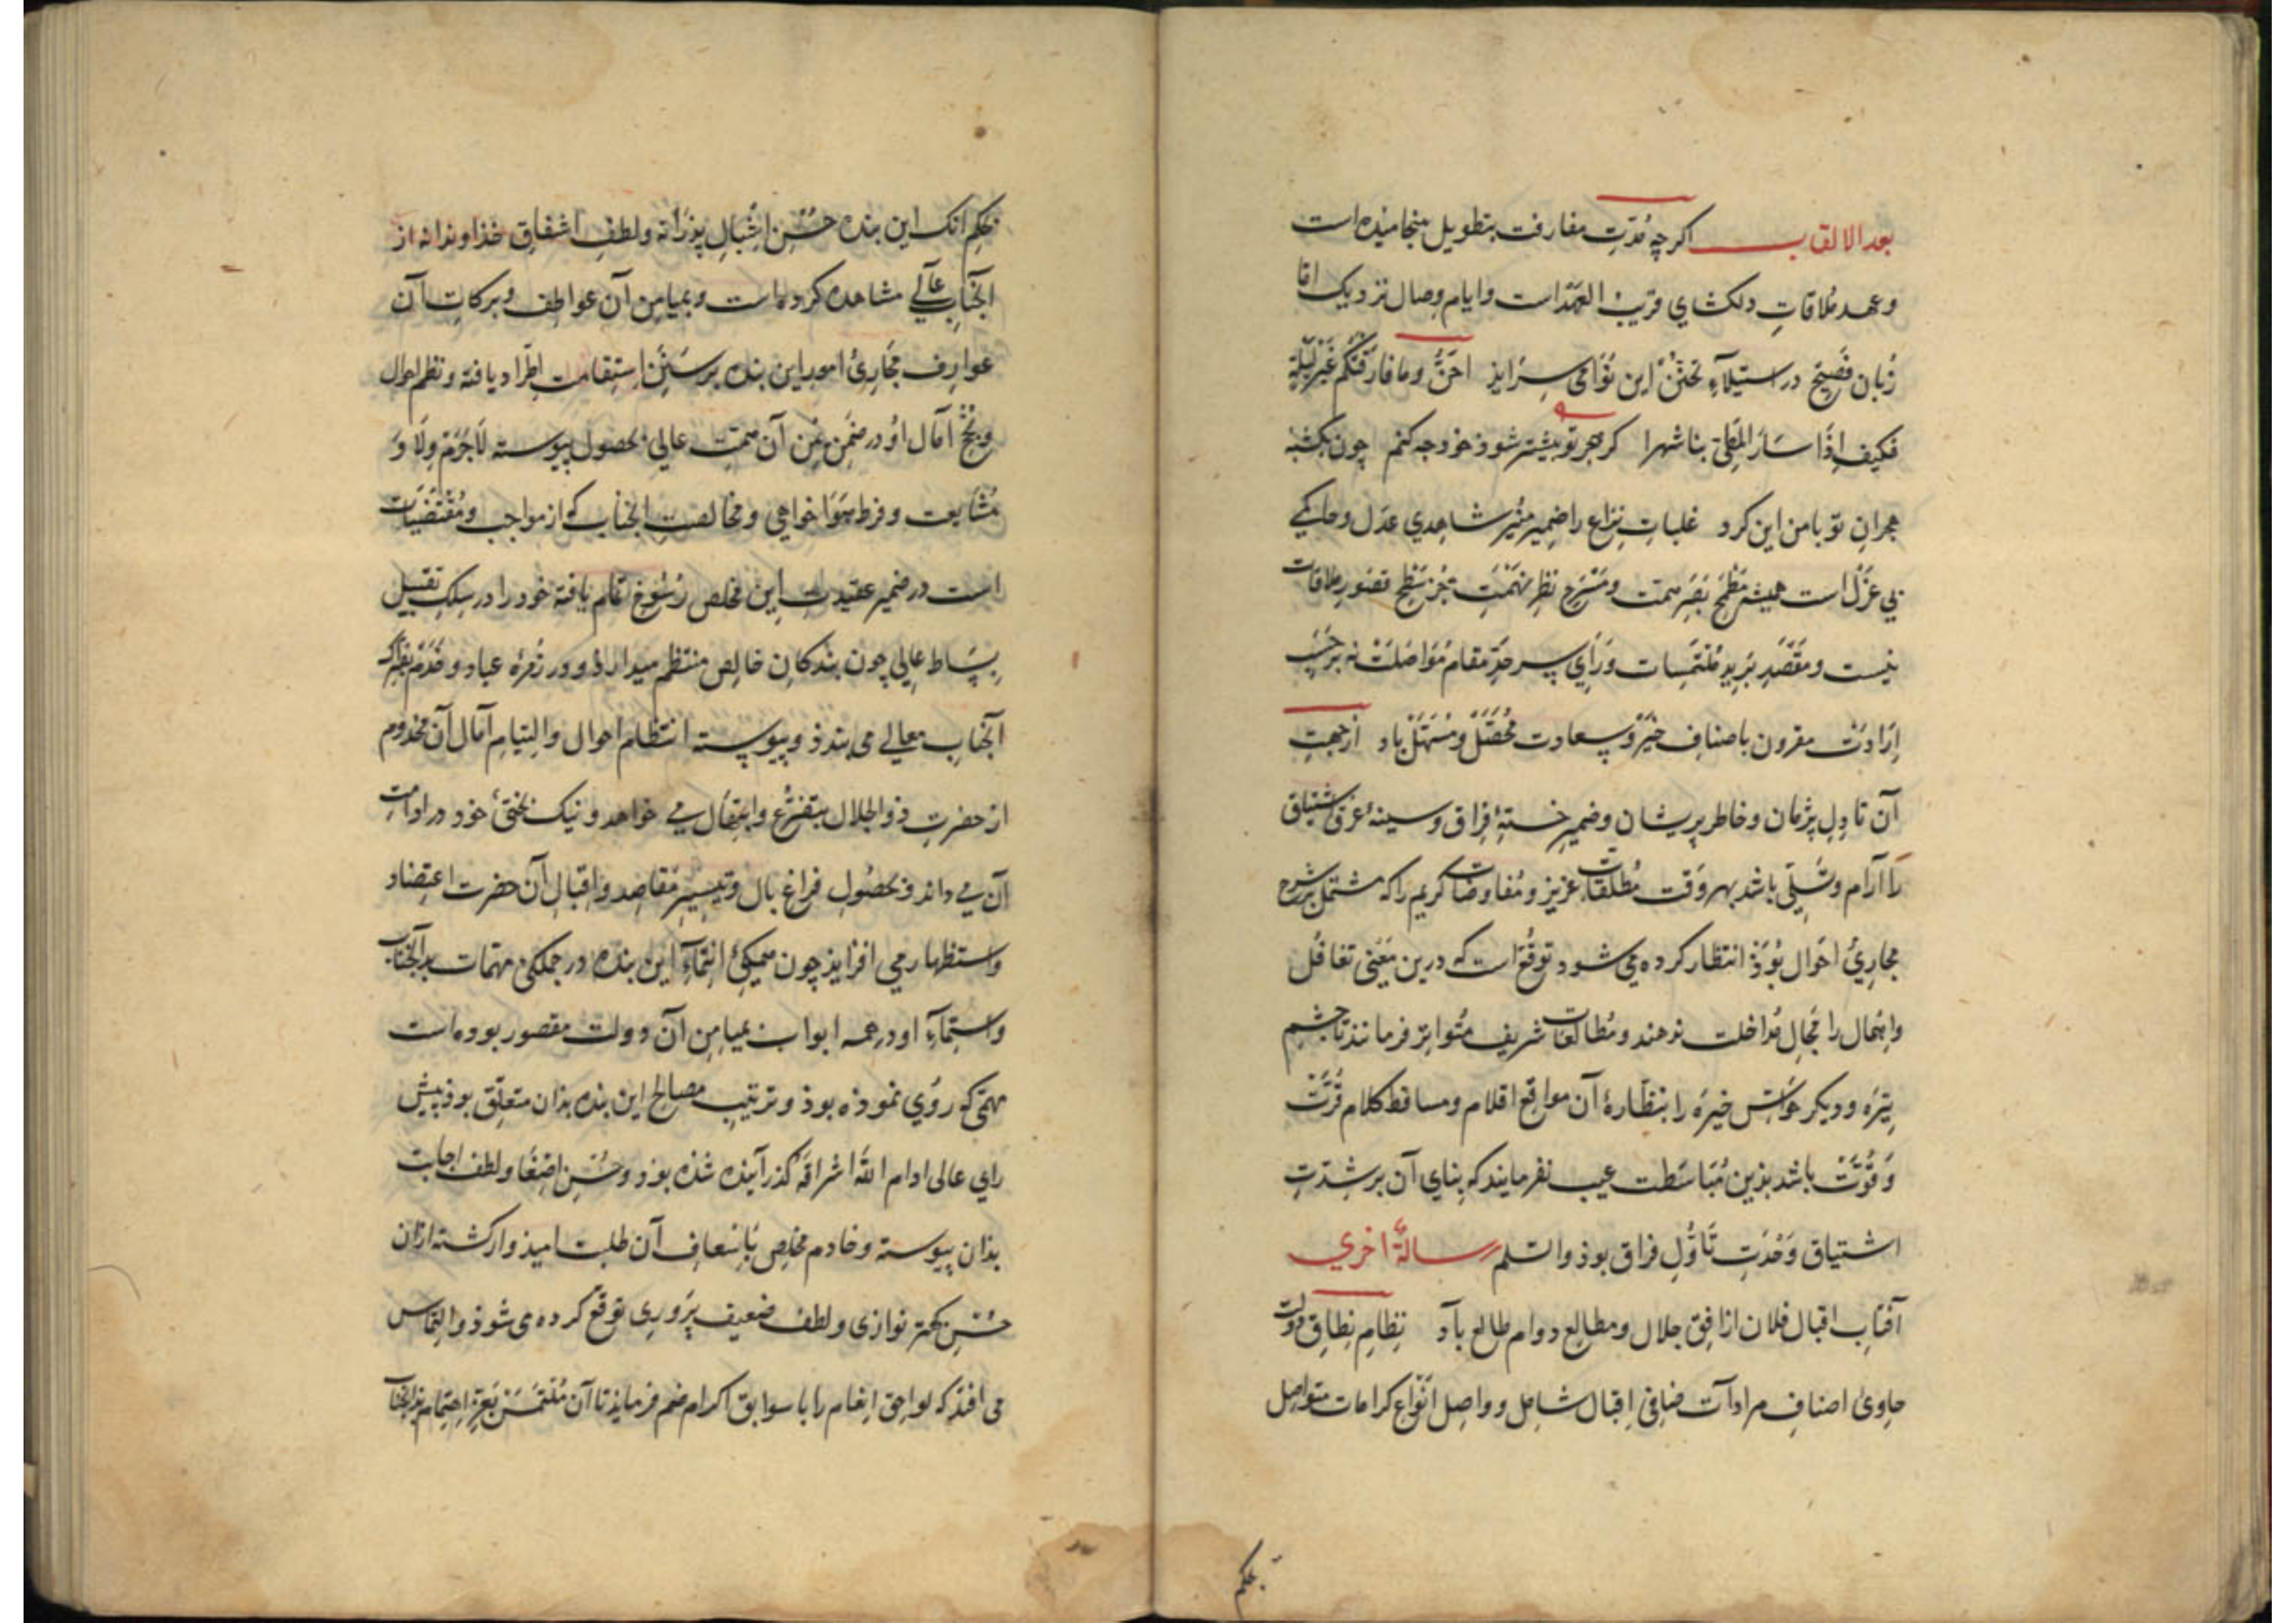 بعد الالقاب اکرچه مدّتِ مفارقت بتطویل بینجامیده است
وعهد مُلاقاتِ دلکشای قریبُ العهداست وایام وصال نزدیک اما
زبان فَصیح در استیلآءِ تحنّن این نَوَاحی سرایذ احنُّ وما فارقتکم غیر لیلةٍ
فکیف اذَا سَارَ المَطِیّ بنا شهرا کر هجر تو بیشتر شوذ خود چه کنم چون یکشبه
هجرانِ تو بامن این کرد غلباتِ نِزاع را ضمیر منیر شاهدی عَدل وحاکمی
بی عَزل است همیشه مَطمَحِ بَصَرِ همت ومَسْرَحِ نظرِ نَهمَت جز سَطحِ تصَورِ ملاقات
نیست ومَقصَدِ بَرِیدِ مُلتمَسات وَرَایِ سرحدِّ مقام مُوَاصلَت نه برحَسَبِ
اِرَادَت مقرون باصنافِ خیر وسعادت مُحَصَّل ومُسَهَّل باد ازجهت
آن تا دِلِ پژمان وخاطر پریشان وضمیر خستهٔ فِراق وسینهٔ غرقِ اشتیاق
را آرام وتَسَلِّی باشد بهر وَقت مُطلقات عزیز ومُفاوضات کریم راکه مشتمل برشرح
مجاریُ احَوال بُوَذ انتظار کرده می شود توقّع است که درین مَعنی تغافُل
واِهمال را مَجالِ مُداخلت ندهند ومُطالعات شریف مُتَواتِر فرمانند تا چشم
تیره ودیکر حواسّ خیرَه را بنظّارهٔ آن مواقع اقلام ومساقط کلام قُرَّت
وَقُوَّت باشد بذین مُبَاسَطت عیب نفرمایند که بنای آن برشِدّتِ
اشتیاق وَحْدَتِ تَاوُّلِ فراق بوذ والسّلم رسالةٌ اخری
آفتاب اقبال فلان ازافقِ جلال ومطالِع دوام طالع باد نِظامِ نِطاقِ دولت
حاوی اصنافِ مرادآت ضافِی اِقبال شامِل وواصِل انْوَاع کرامات متواصِل
بحکم
بحکم انک این بنده حُسْنِ اِشْبالِ پذرانه ولطفِ اشفاقِ خذاوندانه از
آنجناب عالی مشاهده کرده است وبمیامِن آن عواطِف وبرکاتِ آن
عوارِف مَجَارِیُ امور این بنده برسَنَنِ اِستِقامت اِطّراد یافته ونظم احوال
ونُجْحِ آمال اوُ درضِمنِ یُمنِ آن همّت عالی بحصول پیوسته لاجَرَم وِلَا وَ
مُشایعت وفرط هَوَاخواهی ومخالصت آنجناب که ازمواجب ومُقتضَیات
است درضمیر عقیدت این مُخلص رُسُوخ تمام یافته خود را در سِلکِ تقبیل
بِسَاط عالی چون بندکانِ خالِص منتظم میدارذ ودر زُمرهٔ عباد وخَدَم بفتراک
آنجناب معالی می بندذ وپیوسته انتظام احوال والتیامِ آمال آن مخدوم
ازحضرتِ ذوالجلال بتضرّع وابتهال می خواهد ونیک بختیُ خود درادامت
آن می داند وبحصُولِ فراغِ بال وتیسیرِ مَقاصِد واِقبالِ آن حضرت اعتِضاد
واستظهار می افزاید چون همکیُ اِنتِماءِ این بنده درجملکی مهمّات بدآنجناب
واستِماءِ او درهمه ابواب بمیامِنِ آن دولت مقصور بوده است
مهمّی که روُی نموذه بوذ وترتیب مصالح این بنده بذان متعلّق بوذ پیش
رای عالی ادام اللّٰهُ اشراقَهُ کذرآنیده شذه بوذ وحُسْنِ اِصْغا ولطف اجابت
بذان پیوسته وخادم مخلِص بَاِسعافِ آن طلبت امیذوارکشته ازان
حُسْنِ کهتر نوازی ولطف ضعیف پَروَری توقّع کرده می شوذ والتِماس
می افتذ که لواحق اِنعام را با سوابق اکرام ضم فرمایذ تا آن مُلتمَسْ بَعزِّ اِهتِمام بذآنجناب